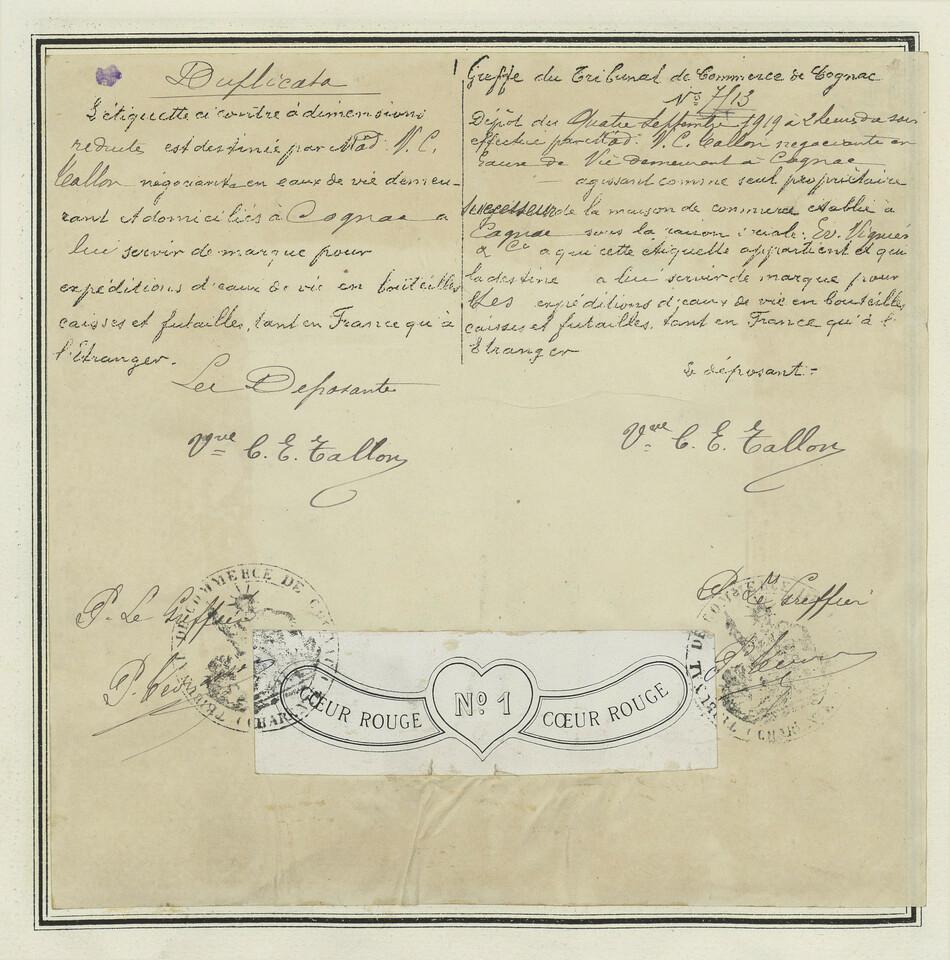 Duplicata
L'étiquette ci contre à dimensions
reduite est destinée par Mad. V. C.
Tallon négociante en eaux de vie demeu-
rant et domiciliés à Cognac a
lui servir de marque pour
expéditions d'eaux de vie en bouteilles
caisses et futailles, tant en France qu'à
l'Etranger.
Les Déposante
Vve C. E. Tallon
Greffe du Tribunal de Commerce de Cognac
No 713
Dépôt du Quatre Septembre 1919 à 2 heures du soir
effectué par Mad. V. C. Tallon négociante en
Eaux de Vie demeurant à Cognac
— agissant comme seul propriétaire
de la maison de commerce établie à
Cognac sous la raison sociale: Ev. Viguier
& Co a qui cette étiquette appartient et qui
la destine a lui servir de marque pour
les expéditions d'eaux de vie en bouteilles
caisses et futailles, tant en France qu'à l'
Etranger
Le déposant =
Vve C. E. Tallon
P. Le Greffier
P. Le Greffier
TRIBUNAL DE COMMERCE DE COGNAC (CHARENTE)
CŒUR ROUGE No 1 CŒUR ROUGE